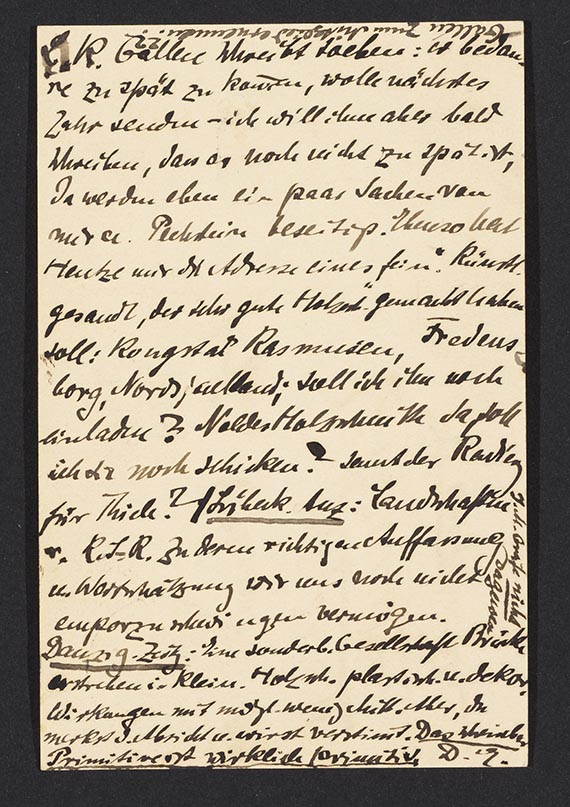 Gallen zum Mitglied ernennen?
K. Gallen schreibt soeben: er bedau-
re zu spät zu kommen, wolle nächstes
Jahr senden – ich will ihm aber bald
schreiben, dass es noch nicht zu spät ist,
da werden eben ein paar Sachen von
mir u. Pechstein beseitigt. Ebenso hat
mir die Adresse eines Künstl.
gesandt, der sehr gute Holzsch. gemacht haben
soll: Kongstat Rasmusen, Fredens
borg, Nordsjaelland; soll ich ihn noch
einladen? Noldes Holzschnitte da soll
ich dir noch schicken? – samt der Radierg
für Thiele? Lübeck. Anz: Landschaften
v. K.S-R. zu deren richtigen Auffassung
u. Wertschätzung wir uns noch nicht
emporzuschwingen vermögen.
Danzig. Zeitg: Eine sonderb. Gesellschaft Brücke
erstreben i. klein. Holzsch. plastisch. u. dekor.
Wirkungen mit mögl. wenig Mitt. aber, du
merkst d. Absicht u. wirst verstimmt. Das scheinbar
Primitive ist wirklich primitiv.
Ich nicht dagegen